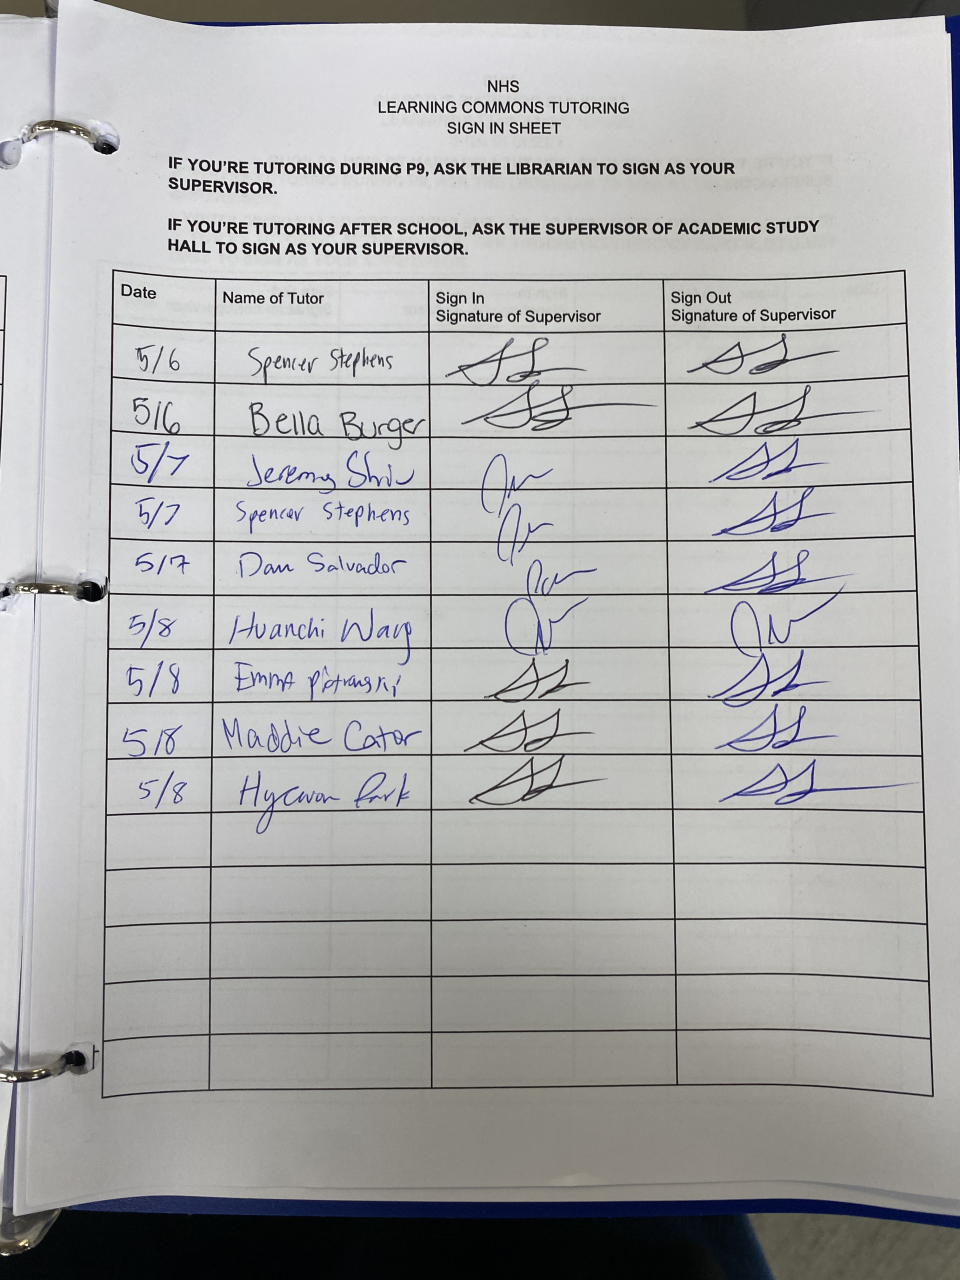 NHS
LEARNING COMMONS TUTORING
SIGN IN SHEET
IF YOU'RE TUTORING DURING P9, ASK THE LIBRARIAN TO SIGN AS YOUR
SUPERVISOR.
IF YOU'RE TUTORING AFTER SCHOOL, ASK THE SUPERVISOR OF ACADEMIC STUDY
HALL TO SIGN AS YOUR SUPERVISOR.
Date Name of Tutor Sign In Signature of Supervisor Sign Out Signature of Supervisor
5/6 Spencer Stephens
5/6 Bella Burger
5/7 Jeremy
5/7 Spencer Stephens
5/7 Dan Salvador
5/8 Huanchi Wang
5/8 Emma
5/8 Maddie Cator
5/8 Park